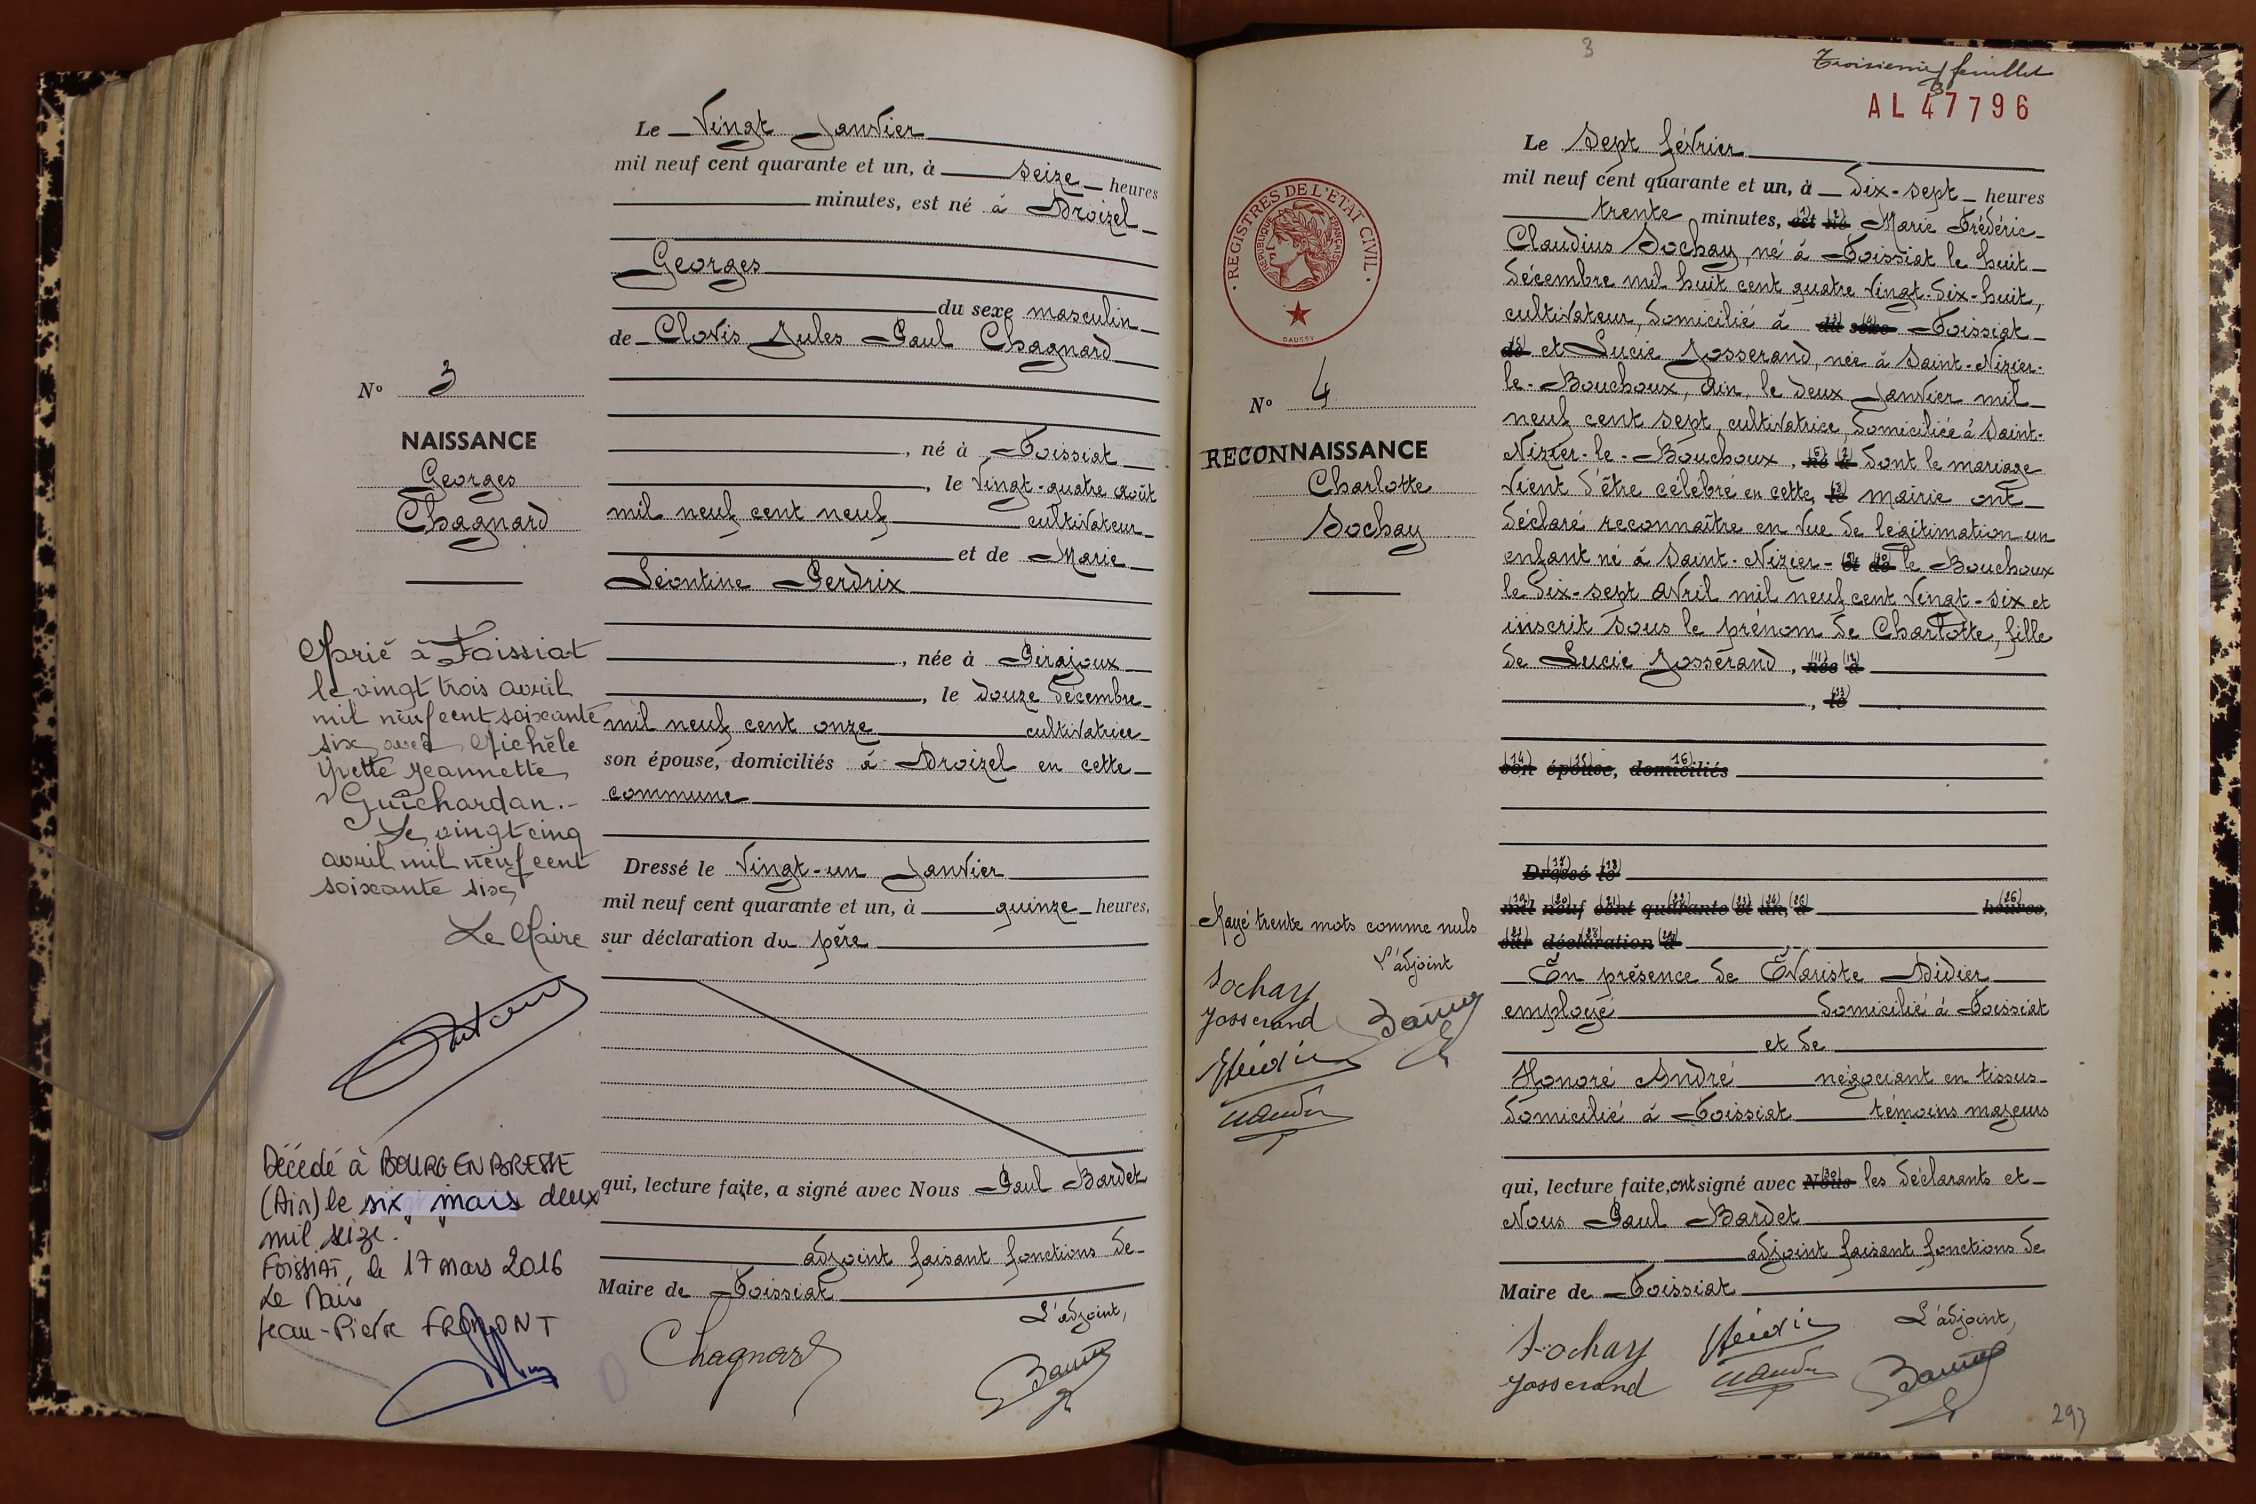 Le Vingt Janvier
mil neuf cent quarante et un, à seize heures
minutes, est né à Droizel
Georges
du sexe masculin
de Clovis Jules Paul Chagnard
, né à Foissiat
, le Vingt-quatre août
mil neuf cent neuf cultivateur
et de Marie
Léontine Perdrix
, née à Pirajoux
, le douze décembre
mil neuf cent onze cultivatrice
son épouse, domiciliés à Droizel en cette
commune
Dressé le Vingt-un Janvier
mil neuf cent quarante et un, à quinze heures,
sur déclaration du père
qui, lecture faite, a signé avec Nous Paul Bardet
adjoint faisant fonctions de
Maire de Foissiat
L'adjoint,
Chagnard
N° 3
NAISSANCE
Georges
Chagnard
Marié à Foissiat
le vingt trois avril
mil neuf cent soixante
six avec Michèle
Yvette Jeannette
Guichardan.-
Le vingt cinq
avril mil neuf cent
soixante six
Le Maire
Décédé à BOURG EN BRESSE
(Ain) le six mars deux
mil seize.
FOISSIAT, le 17 mars 2016
Le Maire
Jean-Pierre FROMONT
3
Troisième feuillet
AL 47796
REGISTRES DE L'ETAT CIVIL
REPUBLIQUE FRANÇAISE
DAUSSY
N° 4
RECONNAISSANCE
Charlotte
Sochay
Rayé trente mots comme nuls
L'adjoint
Sochay
Josserand
Le Sept février
mil neuf cent quarante et un, à dix-sept heures
trente minutes, est (1) né (2) Marie Frédéric
Claudius Sochay, né à Foissiat le huit
décembre mil huit cent quatre vingt-dix-huit,
cultivateur, domicilié à du (3) sexe (4) Foissiat
de (5) et Lucie Josserand, née à Saint-Nizier-
le-Bouchoux, Ain, le deux Janvier mil
neuf cent sept, cultivatrice, domiciliée à Saint-
Nizier-le-Bouchoux, né (6) à (7) dont le mariage
vient d'être célébré en cette le (8) mairie ont
déclaré reconnaître en vue de légitimation un
enfant né à Saint-Nizier- et (9) de (10) le Bouchoux
le dix-sept avril mil neuf cent vingt-six et
inscrit sous le prénom de Charlotte, fille
de Lucie Josserand, née (11) à (12)
, le (13)
son (14) épouse (15), domiciliés (16)
Dressé (17) le (18)
mil (19) neuf (20) cent (21) quarante (22) et (23) un (24), à (25) heures (26),
sur (27) déclaration (28) d (29)
En présence de Évariste Didier
employé domicilié à Foissiat
et de
Honoré André négociant en tissus
domicilié à Foissiat témoins majeurs
qui, lecture faite, ont signé avec Nous (30) les déclarants et
Nous Paul Bardet
adjoint faisant fonctions de
Maire de Foissiat
L'adjoint,
Sochay
Josserand
293